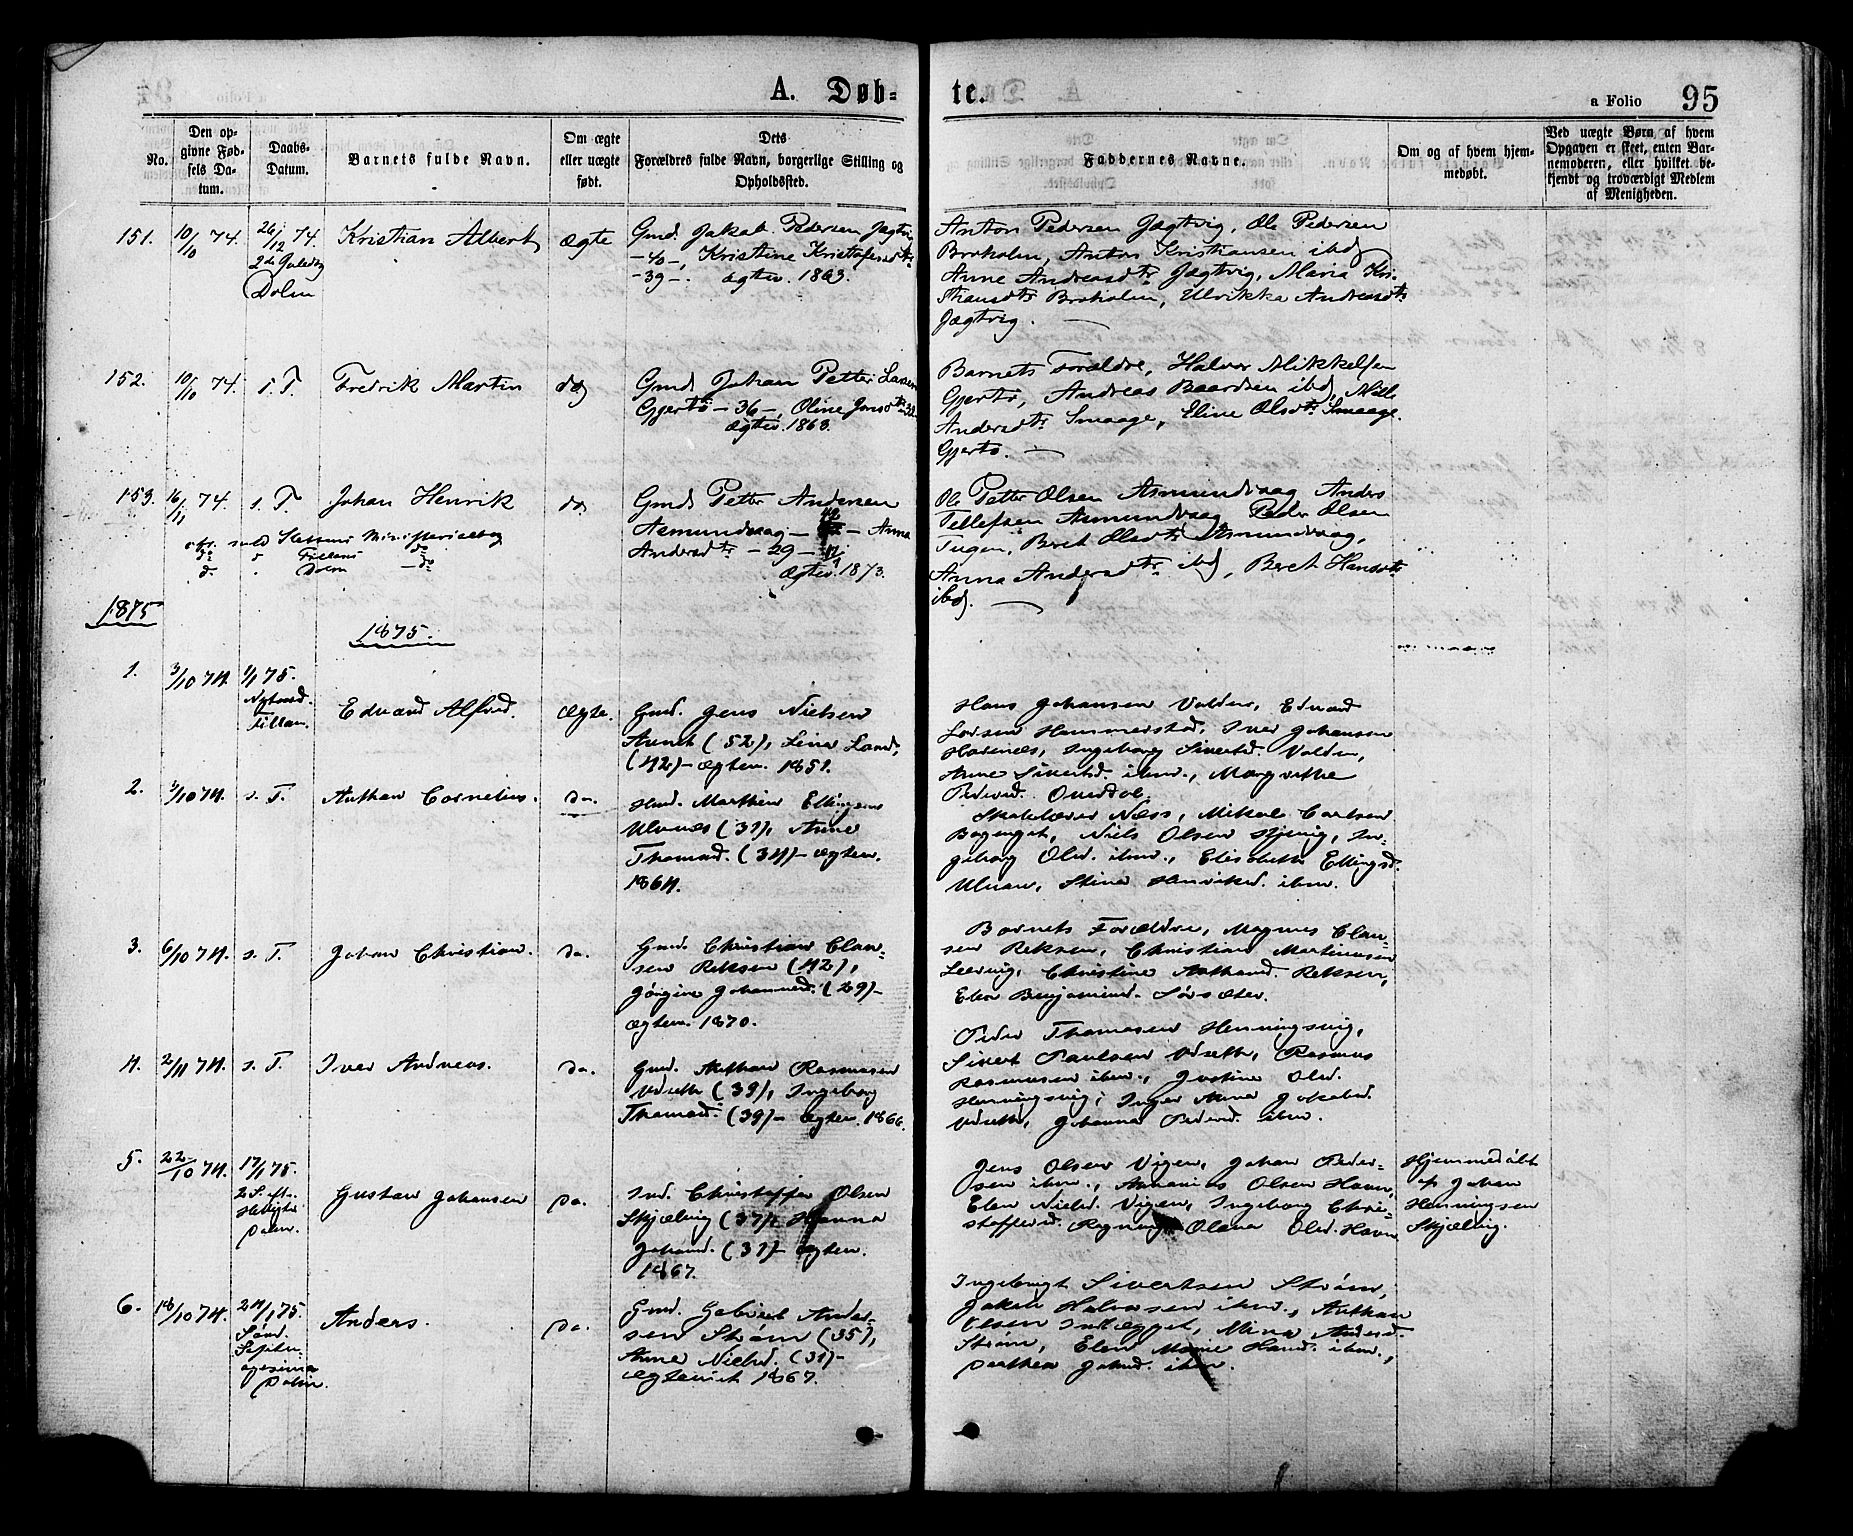 A. Døb-
te.
a Folio 95
No.
Den op-
givne Fød-
sels Da-
tum.
Daabs-
Datum.
Barnets fulde Navn.
Om ægte
eller uægte
født.
Dets
Forældres fulde Navn, borgerlige Stilling og
Opholdssted.
Faddernes Navne.
Om og af hvem hjem-
medøbt.
Ved uægte Børn af hvem
Opgaven er skeet, enten Bar-
nemoderen, eller hvilket be-
kjendt og troværdigt Medlem
af Menigheden.
151. 10/10 74. 26/12 74. Kristian Albert ægte
2de Juledag
Dolm
Gmd. Jakob Pedersen Jægtvig
-40-, Kristine Kristofersdtr
-39-. ægtev. 1863.
Anton Pedersen Jægtvig, Ole Pedersen
Broholm, Anton Kristiansen ibd
Anne Andreasdtr Jægtvig, Maria Kri-
stiansdtr Broholm, Ulrikke Andreasdtr
Jægtvig.
152. 10/10 74. s. T. Fredrik Martin do
Gmd Johan Petter Larsen
Gjertø -36-, Oline Jonsdtr
ægtev. 1863.
Barnets Forældre, Halvor Mikkelsen
Gjertø, Andreas Baardsen ibd,
Andersdtr Smaage, Eline Olsdtr Smaage
Gjertø.
153. 16/11 74. s. T. Johan Henrik do
Gmd Petter Andersen
Asmundvaag - 42 - Anna
Andersdtr -29-
Ægtev. 1873.
Ole Petter Olsen Asmundvaag Anders
Tellefsen Asmundvaag Peder Olsen
Tugen, Beret Olsdtr Asmundvaag,
Anna Andersdtr ibd, Beret Hansdtr
ibd.
Ministerialbog
Fillans do
Dolm do
1875
1875.
1. 3/10 74. 1/1 75.
Nytaarsd.
Fillan.
Edvard Alfred. Ægte.
Gmd. Jens Nielsen
Aunet (52), Lina Larsd.
(42)- ægtev. 1851.
Hans Johansen Valden, Edvard
Larsen Hammerstad, Iver Johansen
Havnæs, Ingeborg Sivertsd. Valden,
Anne Sivertsd. ibm., Margrethe
Pedersd.
2. 3/10 74. s. T. Anthon Cornelius. Do.
Hmd. Marthin Ellingsen
Ulvnes (31), Anne
Thomasd. (34)- ægtev.
1864.
Skolelærer Næss, Mikal Carlsen
Bogenget, Niels Olsen Hjervig, In-
geborg Olsd. ibm., Elisabeth Ellingsd.
Ulvan, Stina Henriksd. ibm.
3. 6/10 74. s. T. Johan Christian. Do.
Gmd. Christian Clau-
sen Reksen (42),
Jørgine Johannesd. (29)-
ægtev. 1870.
Barnets Forældre, Magnus Clau-
sen Reksen, Christian Martinusen
Leervig, Christine Anthonsd. Reksen,
Elen Benjaminsd. Sørsæter.
4. 2/11 74. s. T. Iver Andreas. Do.
Gmd. Anthon Rasmussen
Udseth (39), Ingeborg
Thomasd. (39)- ægtev. 1866.
Peder Thomasen Henningsvig,
Sivert Paulsen Udseth, Rasmus
Rasmussen ibm., Justine Olsd.
Henningsvig, Inger Anna Jakobsd.
Udseth, Johanna Pedersd. ibm.
5. 22/10 74. 17/1 75.
2 S. eft.
Dolm.
Gustav Johansen Do.
Ind. Christoffer Olsen
Skjælvig (37), Hanna
Johansd. (31)- ægtev.
1867.
Jens Olsen Vigen, Johan Peder-
sen ibm., Ananias Olsen Havn,
Elen Nielsd. Vigen, Ingeborg Chri-
stoffersd. Røgning, Olena Olsd. Havn
Hjemmedøbt
af Johan
Henningsen
Skjælvig.
6. 18/10 74. 24/1 75.
Sønd.
Septu-
agesima
Dolm.
Anders. Do.
Gmd. Gabriel Ander-
sen Strøm (35),
Anne Nielsd. (31)-
ægteviet 1867.
Ingebrigt Sivertsen Strøm,
Jakob Halvorsen ibm., Anthon
Olsen Indlægget, Mina Andersd.
Strøm, Elen Marie Hansd. ibm.,
Dorthea Johnsd. ibm.